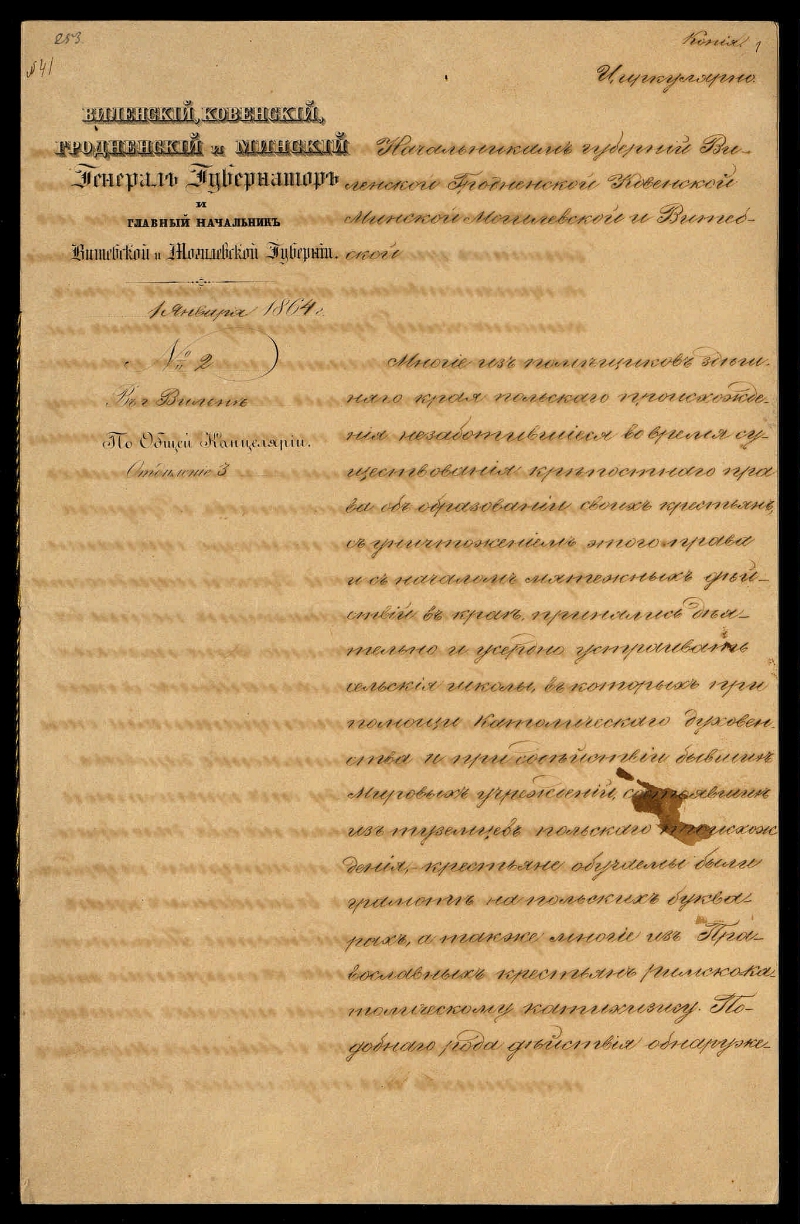 253.
№41
Копія 1
Циркулярно.
ВИЛЕНСКІЙ, КОВЕНСКІЙ,
ГРОДНЕНСКІЙ и МИНСКІЙ
Генералъ Губернаторъ
и
ГЛАВНЫЙ НАЧАЛЬНИКЪ
Витебской и Могилевской Губерніи.
1 Января 1864 г.
№ 2
Въ г Вильнѣ
По Общей Канцеляріи.
Отдѣленіе 3
Начальникамъ губерній Ви-
ленской Гродненской Ковенской
Минской Могилевской и Витеб-
ской
Многіе изъ помѣщиковъ здѣш-
няго края польскаго происхожде-
нія незаботившіеся во время су-
ществованія крѣпостнаго пра-
ва объ образованіи своихъ крестьянъ,
съ уничтоженіемъ этого права
и съ началомъ мятежныхъ дѣй-
ствій въ краѣ, принялись дѣя-
тельно и усердно устраивать
сельскія школы, въ которыхъ при
помощи Католическаго духовен-
ства и при содѣйствіи бывшихъ
Мировыхъ учрежденій, состоявшихъ
изъ туземцевъ польскаго происхож
денія, крестьяне обучаемы были
грамотѣ на польскихъ буква-
ряхъ, а также многіе изъ Пра-
вославныхъ крестьянъ римскока-
толическому катихизису. По-
добнаго рода дѣйствія обнаруже-